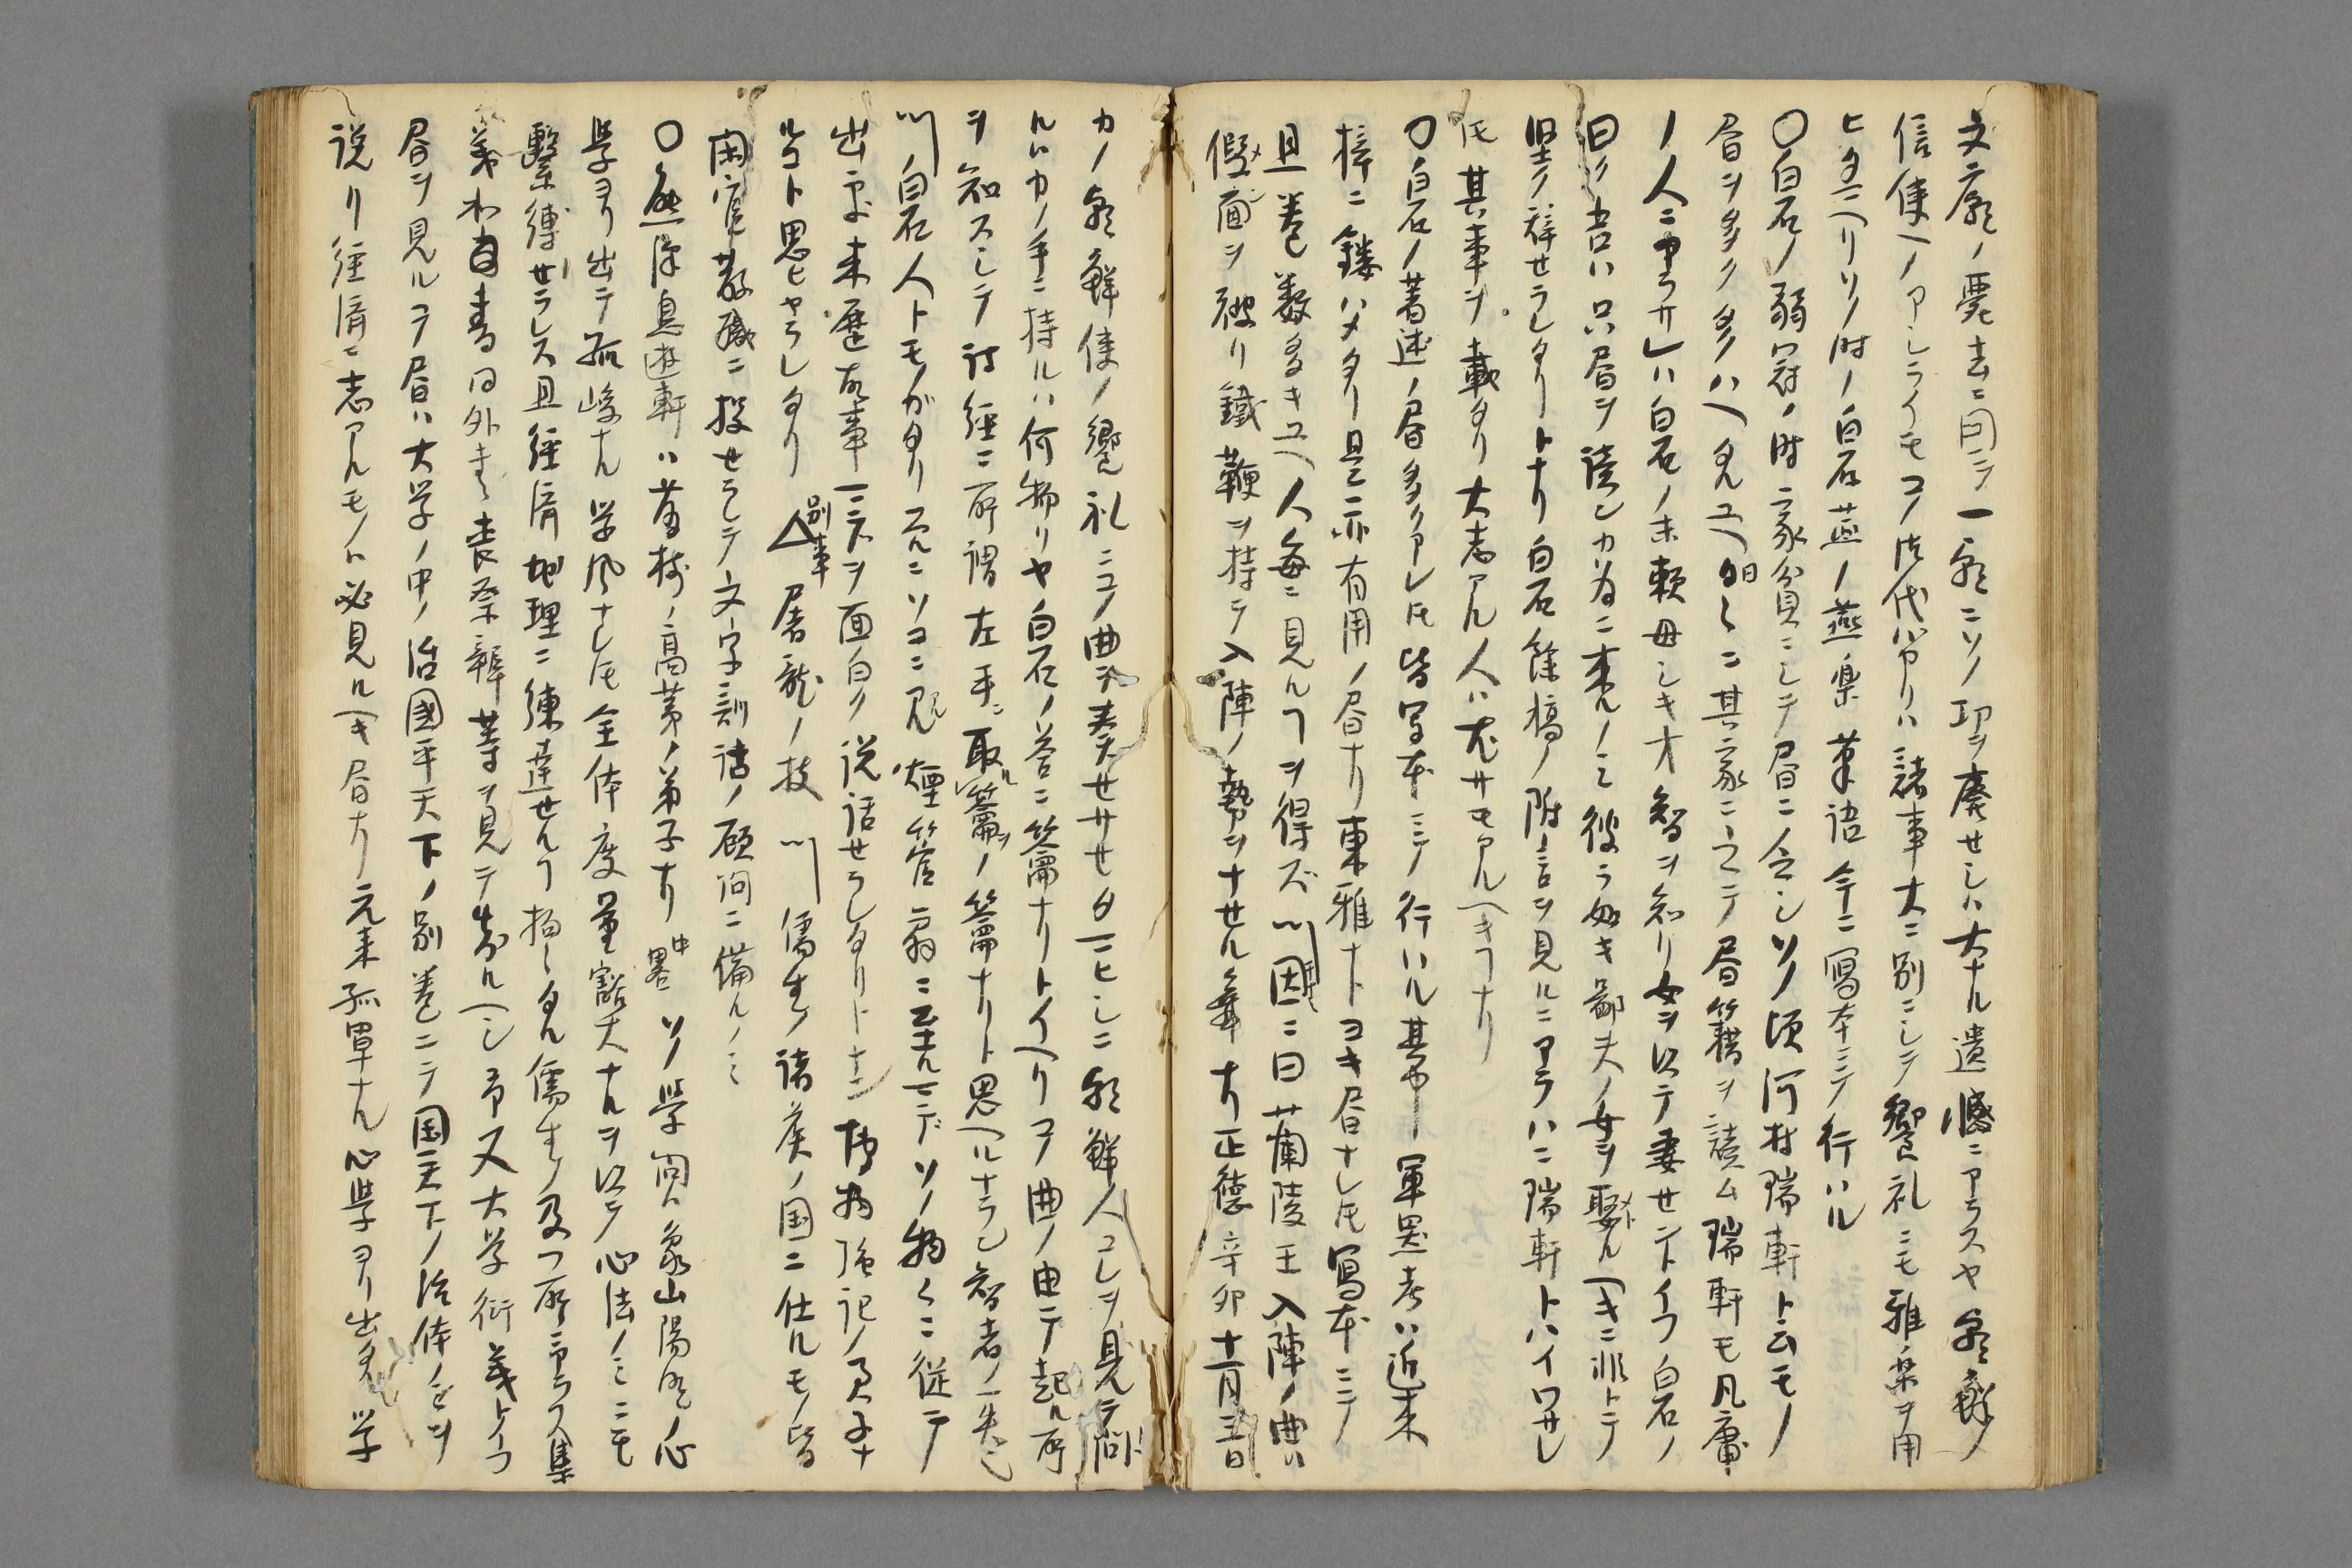 文廟ノ薨去ニ因テ一朝ニソノ功ヲ廃セシハ大ナル遺憾ニアラスヤ朝鮮ノ
信使ヘノアシライモコノ御代バカリハ諸事大ニ別ニシテ饗礼ニモ雅楽ヲ用
ヒタマヘリソノ時ノ白石ノ燕楽筆語今ニ寫本ニテ行ハル
〇白石ノ弱冠ノ時家貧ニシテ書ニ乏シソノ頃河村瑞軒ト云モノ
書ヲ多ク タクハヘタルユヘ日々ニ其家ニ之テ書籍ヲ読ム瑞軒モ凡庸
ノ人ニアラサレハ白石ノ末頼母シキ才智ヲ知リ女ヲ以テ妻セントイフ白石ノ
曰ク吾ハ只書ヲ読ンカ為ニ来ルノミ彼ラ如キ鄙夫ノ女ヲ娶ルヘキニ非トテ
堅ク辞セラレタリトナリ白石餘稿ノ附言ヲ見ルニアラハニ瑞軒トハイワサレ
圧其事ヲ載タリ大志アル人ハ尤サモアルヘキコナリ
〇白石ノ著述ノ書多クアレ圧皆写本ニテ行ハル其中軍器考ハ近来
梓ニ鏤ハメタリ是亦有用ノ書ナリ東雅ナトヨキ書ナレ圧寫本ニテ
且巻数多キユヘ人毎ニ見ルヿヲ得ズ 因ニ曰蘭陵王入陣ノ曲ハ
假面ヲ被リ鐵鞭ヲ持テ入陣ノ勢ヲナセル舞ナリ正徳辛卯十一月三日
カノ朝鮮使ノ饗礼ニコノ曲ヲ奏セサセタマヒシニ朝鮮人コレヲ見テ問
ルハカノ手ニ持ルハ何物リヤ白石ノ答ニ籥ナリトイヘリコノ曲ノ由テ起ル所
ヲ知スシテ詩経ニ所謂左手ニ取ル籥ヲノ籥ナリト思ヘルナラン智者ノ一失也
白石人トモノガタリスルニソコニ見ル烟管扇ニ至ルマデソノ物々ニ従テ
出処来歴故事マデヲ面白ク説話セラレタリトナン博物強記ノ君子ナ
ルコト思ヒヤラレタリ 別事 屠龍ノ技 儒生ノ諸侯ノ国ニ仕ルモノ皆
閑官散職ニ投セラレテ文字訓詁ノ顧問ニ備ルノミ
〇熊澤息遊軒ハ藤樹ノ高第ノ弟子ナリ 中畧 ソノ學問ハ象山陽明ノ心
學ヨリ出テ孤峻ナル学風ナレ圧全体度量豁大ナルヲ以テ心法ノミニモ
繋縛セラレス且経濟地理ニ練達セルヿ拘々タル儒生ノ及フ所ニアラス集
義和書同外書喪祭辯等ヲ見テ知ルヘシ予又大学衍義トイフ
書ヲ見ルコノ書ハ大学ノ中ノ治國平天下ノ別巻ニテ国天下ノ治体ノミヲ
説リ経濟ニ志アルモノハ必見ルヘキ書ナリ元来孤單ナル心學ヨリ出タル学